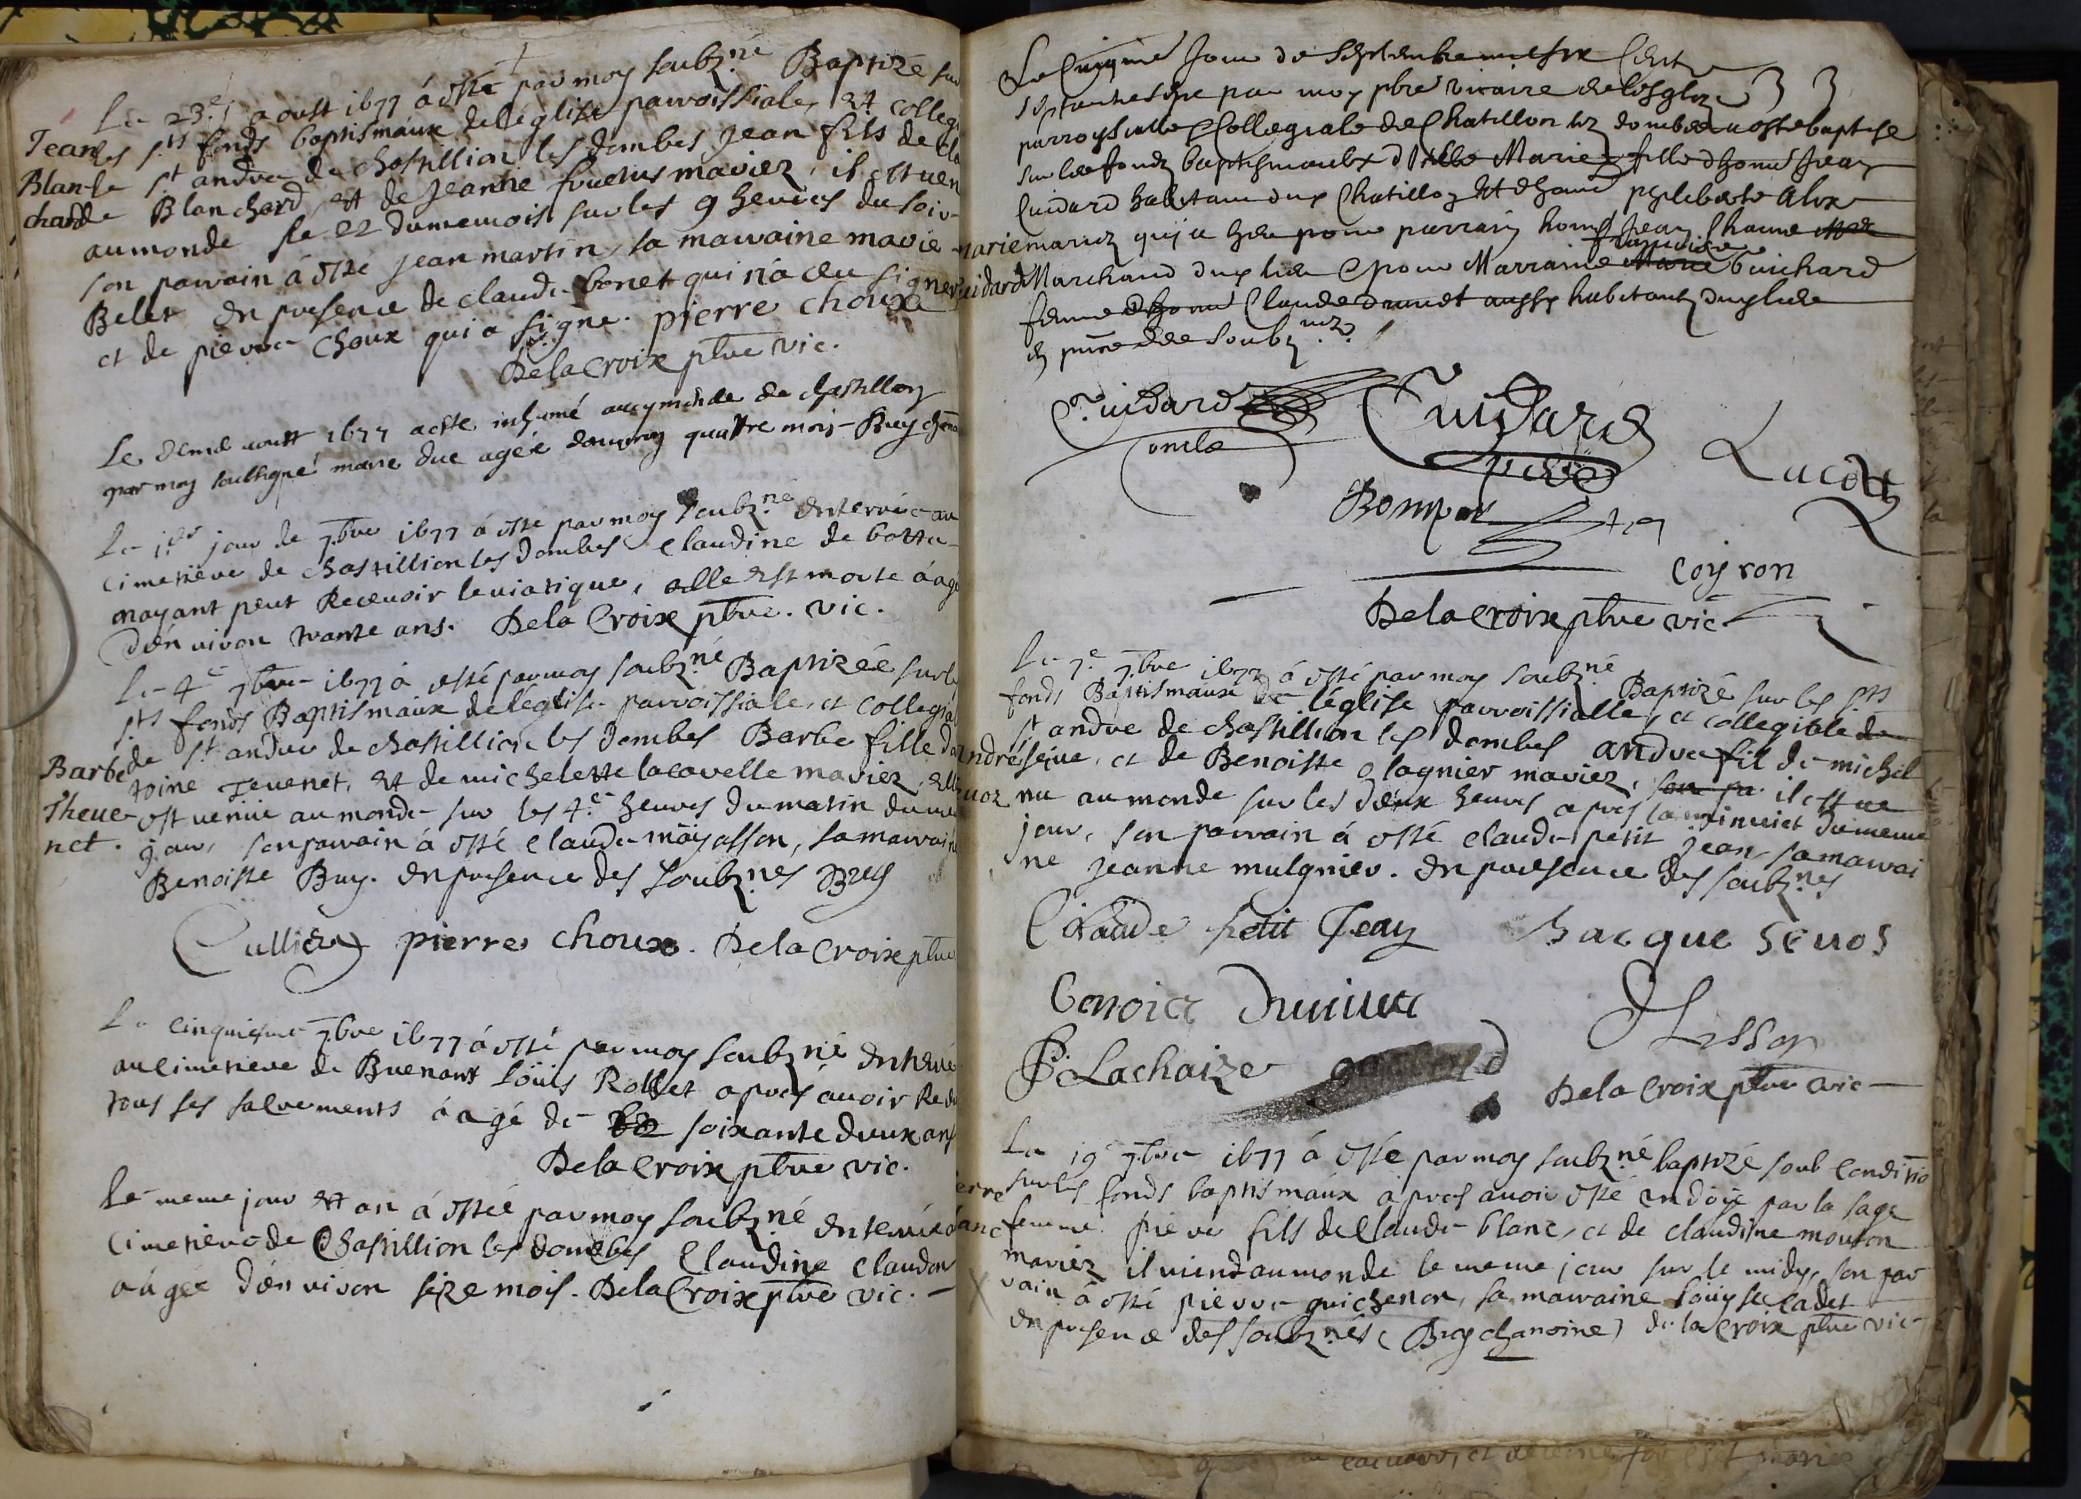 Le 23.e aoust 1677 à esté par moy soubz.né Baptizé sur
les s.ts fonds baptismaux de léglise parroissiale, et collegi
Jean
Blan
chard
le s.t andre de chastillion les dombes Jean fils de cla
de Blanchard, et de Jeanne fructus mariez, il est uen
au monde le 22 du memois sur les 9 heures du soir
son parrain à esté jean martin, sa marraine marie
Belet en presence de claude bonet qui n'a sceu signer
et de pierre choux qui a signé. pierre choux
De la Croix pbre vic.
Le aoust 1677 a esté inhumé au cymitiere de chastillon
par moy soussigné marie duc agée denviron quattre mois - Buy chano
Le 1.er jour de 7bre 1677 à esté par moy soubz.né enterrée au
cimetiere de chastillion les dombes claudine de botte
nayant peut Recevoir le viatique, elle est morte áagé
d'environ trante ans. De la Croix pbre. vic.
Le 4e 7bre 1677 à esté par moy soubz.né Baptizée sur le
s.ts fonds Baptismaux de léglise parroissiale, et collegial
Barbe
Theue
net.
de s.t andre de chastillion les dombes Barbe fille d'an
toine Teuenet, et de michelette lacavelle mariez, elle
est uenüe au monde sur les 4.e heures du matin du me
jour, son parrain à esté claude mayosson, sa marraine
Benoiste Buy. en presence des soubz.nes Buy
Cullier pierre choux. De la Croix pbre
Le cinquieme 7bre 1677 à esté par moy soubz.né enterré
au cimetiere de Buenant Loüis Rollet apres auoir Receu
tous ses sacrements áagé de soixante deux ans
De la croix pbre vic.
Le meme jour et an à estée par moy soubz.né enterrée
cimetiere de Chastillion les dombes Claudine claudon
aágée d'environ seize mois. De la Croix pbre vic.
Le Cinqième Jour de Septembre mil six Cent
septante sept par moy pbre vicaire de lesglize
parroysialle & Collegiale de Chatillon lez dombes a esté baptise
sur les fondz baptismaulx d Marie fille dhonn Jean
Guidard habitant dux Chatillon et dhonn phileberte Alix
marie mariez qui a heu pour parrain honn Jean Channe
uidard Marchand dux lieu & pour Marraine francoise Guichard
femme Claude aussy habitant dux lieu
en pnce des soubz.nez
Guidard oncle Guidard pere Lucott
Bompar
Coyron
De la croix pbre vic.
Le 7.e 7bre 1677 à esté par moy soubz.né Baptizé sur les s.ts
fonds Baptismaux de léglise parroissialle, et collegiale de
s.t andre de chastillion les dombes andre fil de michel
andré
uoz
seiue, et de Benoiste glagnier mariez, il est ue
nu au monde sur les deux heures apres la minuict du meme
jour, son parrain à esté claude petit jean, sa marrai
ne jeanne mulgnier. en presence des soubz.nes
Claude petit Jean Jacque seuos
Benoict
P. Lachaize
De la Croix pbre vic
Le 19 7bre 1677 à esté par moy soubz.né baptizé soub conditio
erre
anc
sur les fonds baptismaux apres auoir esté endoyé par la sage
femme. pierre fils de Claude blanc, et de claudine mouton
mariez il uient au monde le meme jour sur le midy, son par
rain à esté pierre guichenon, sa marraine loüyse cadet
en presence des soubz.nés (Buy chanoine) de la Croix pbre vic